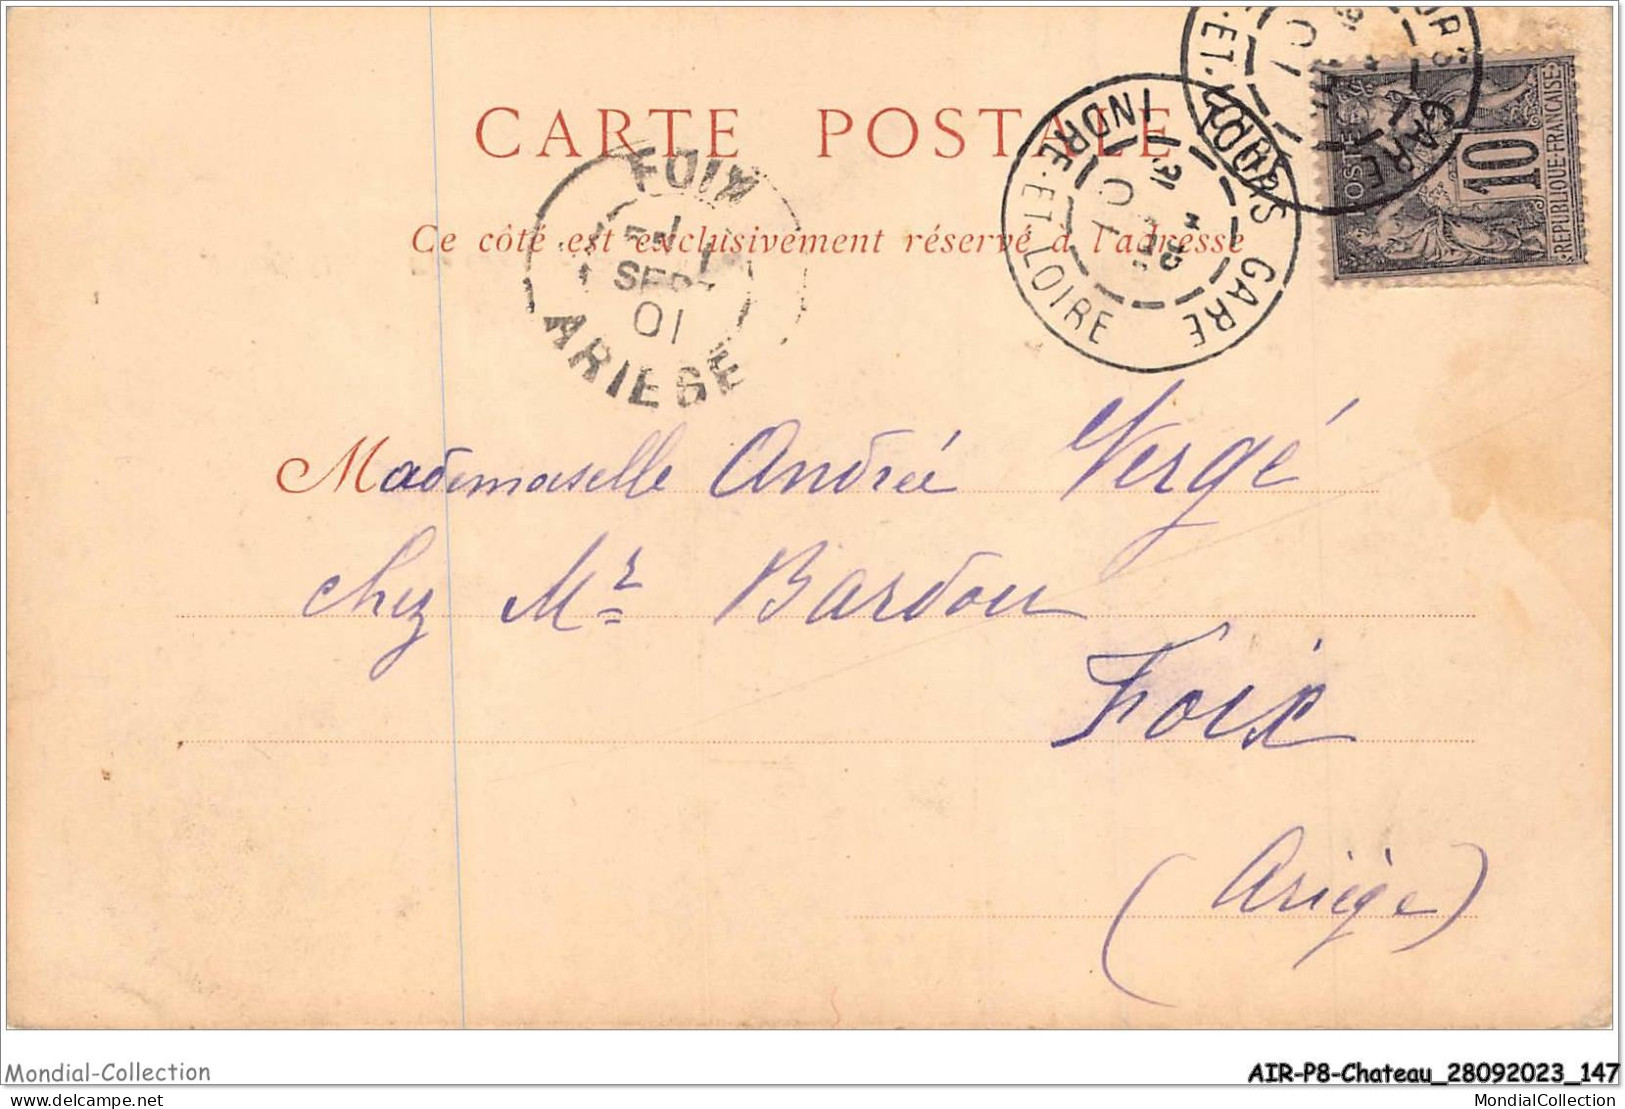 CARTE POSTALE
Ce côté est exclusivement réservé à l'adresse
FOIX
SEPT
01
ARIEGE
TOURS GARE
31
01
INDRE-ET-LOIRE
GARE
ET
31
01
POSTES
10
REPUBLIQUE FRANÇAISE
Mademoiselle Andrée Vergé
chez Mr Bardou
Foix
(Ariège)
Mondial-Collection
AIR-P8-Chateau_28092023_147
delcampe.net
MondialCollection